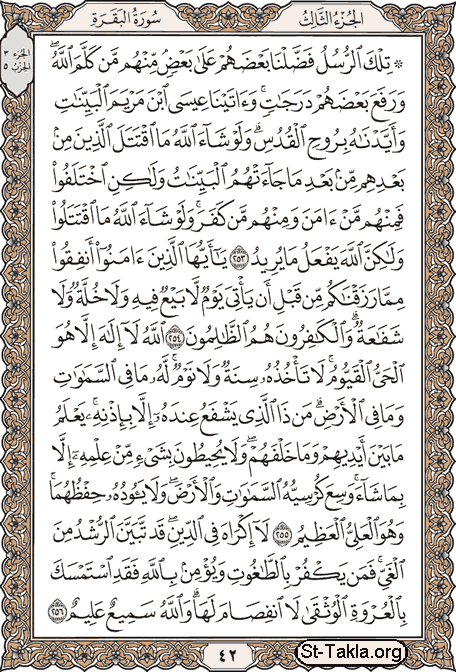 الجزء الثالث
سورة البقرة
الجزء ٣
الحزب ٥
۞ تِلْكَ ٱلرُّسُلُ فَضَّلْنَا بَعْضَهُمْ عَلَىٰ بَعْضٍ مِّنْهُم مَّن كَلَّمَ ٱللَّهُ
وَرَفَعَ بَعْضَهُمْ دَرَجَٰتٍ وَءَاتَيْنَا عِيسَى ٱبْنَ مَرْيَمَ ٱلْبَيِّنَٰتِ
وَأَيَّدْنَٰهُ بِرُوحِ ٱلْقُدُسِ وَلَوْ شَآءَ ٱللَّهُ مَا ٱقْتَتَلَ ٱلَّذِينَ مِنۢ
بَعْدِهِم مِّنۢ بَعْدِ مَا جَآءَتْهُمُ ٱلْبَيِّنَٰتُ وَلَٰكِنِ ٱخْتَلَفُوا۟
فَمِنْهُم مَّنْ ءَامَنَ وَمِنْهُم مَّن كَفَرَ وَلَوْ شَآءَ ٱللَّهُ مَا ٱقْتَتَلُوا۟
وَلَٰكِنَّ ٱللَّهَ يَفْعَلُ مَا يُرِيدُ ٢٥٣ يَٰٓأَيُّهَا ٱلَّذِينَ ءَامَنُوٓا۟ أَنفِقُوا۟
مِمَّا رَزَقْنَٰكُم مِّن قَبْلِ أَن يَأْتِىَ يَوْمٌ لَّا بَيْعٌ فِيهِ وَلَا خُلَّةٌ وَلَا
شَفَٰعَةٌ وَٱلْكَٰفِرُونَ هُمُ ٱلظَّٰلِمُونَ ٢٥٤ ٱللَّهُ لَآ إِلَٰهَ إِلَّا هُوَ
ٱلْحَىُّ ٱلْقَيُّومُ لَا تَأْخُذُهُۥ سِنَةٌ وَلَا نَوْمٌ لَّهُۥ مَا فِى ٱلسَّمَٰوَٰتِ
وَمَا فِى ٱلْأَرْضِ مَن ذَا ٱلَّذِى يَشْفَعُ عِندَهُۥٓ إِلَّا بِإِذْنِهِۦ يَعْلَمُ
مَا بَيْنَ أَيْدِيهِمْ وَمَا خَلْفَهُمْ وَلَا يُحِيطُونَ بِشَىْءٍ مِّنْ عِلْمِهِۦٓ إِلَّا
بِمَا شَآءَ وَسِعَ كُرْسِيُّهُ ٱلسَّمَٰوَٰتِ وَٱلْأَرْضَ وَلَا يَـُٔودُهُۥ حِفْظُهُمَا
وَهُوَ ٱلْعَلِىُّ ٱلْعَظِيمُ ٢٥٥ لَآ إِكْرَاهَ فِى ٱلدِّينِ قَد تَّبَيَّنَ ٱلرُّشْدُ مِنَ
ٱلْغَىِّ فَمَن يَكْفُرْ بِٱلطَّٰغُوتِ وَيُؤْمِنۢ بِٱللَّهِ فَقَدِ ٱسْتَمْسَكَ
بِٱلْعُرْوَةِ ٱلْوُثْقَىٰ لَا ٱنفِصَامَ لَهَا وَٱللَّهُ سَمِيعٌ عَلِيمٌ ٢٥٦
٤٢
St-Takla.org